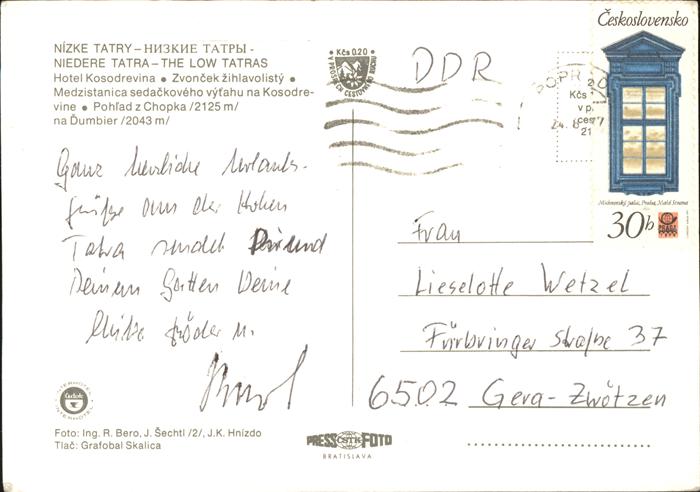 NÍZKE TATRY – НИЗКИЕ ТАТРЫ -
NIEDERE TATRA – THE LOW TATRAS
Hotel Kosodrevina • Zvonček žihlavolistý •
Medzistanica sedačkového výťahu na Kosodre-
vine • Pohľad z Chopka /2125 m/
na Ďumbier /2043 m/
Kčs 0.20
DDR
POPR
24. 8. 77
2
Kčs
v p.
ces
21
Československo
Michnovský palác, Praha, Malá Strana
30h
Ganz herzliche Urlaubs-
grüße aus der Hohen
Tatra sendet Dir und
Deinem Gatten Deine
u.
Frau
Lieselotte Wetzel
Fürbringer Straße 37
6502 Gera-Zwötzen
Foto: Ing. R. Bero, J. Šechtl /2/, J.K. Hnízdo
Tlač: Grafobal Skalica
PRESS ČSTK FOTO
BRATISLAVA